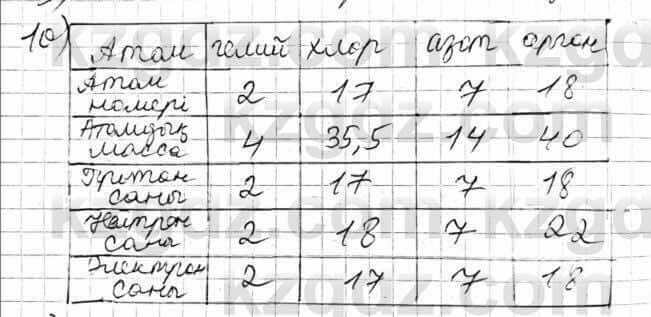 10)
Атом гелий хлор азот аргон
Атом
номері 2 17 7 18
Атомдық
масса 4 35,5 14 40
Протон
саны 2 17 7 18
Нейтрон
саны 2 18 7 22
Электрон
саны 2 17 7 18
kzgdz.com